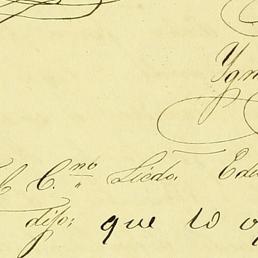 Ygn
el C.no Licdo. Edu
dijo: que lo o